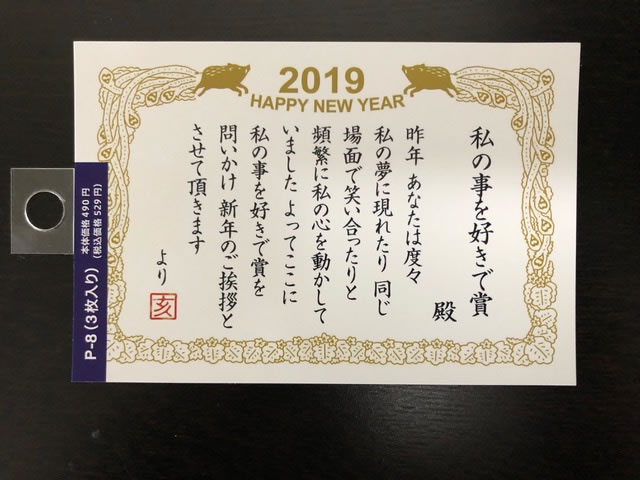 2019
HAPPY NEW YEAR
私の事を好きで賞
殿
昨年 あなたは度々
私の夢に現れたり 同じ
場面で笑い合ったりと
頻繁に私の心を動かして
いました よってここに
私の事を好きで賞を
問いかけ 新年のご挨拶と
させて頂きます
より
亥
P-8(3枚入り)
本体価格490円
(税込価格529円)